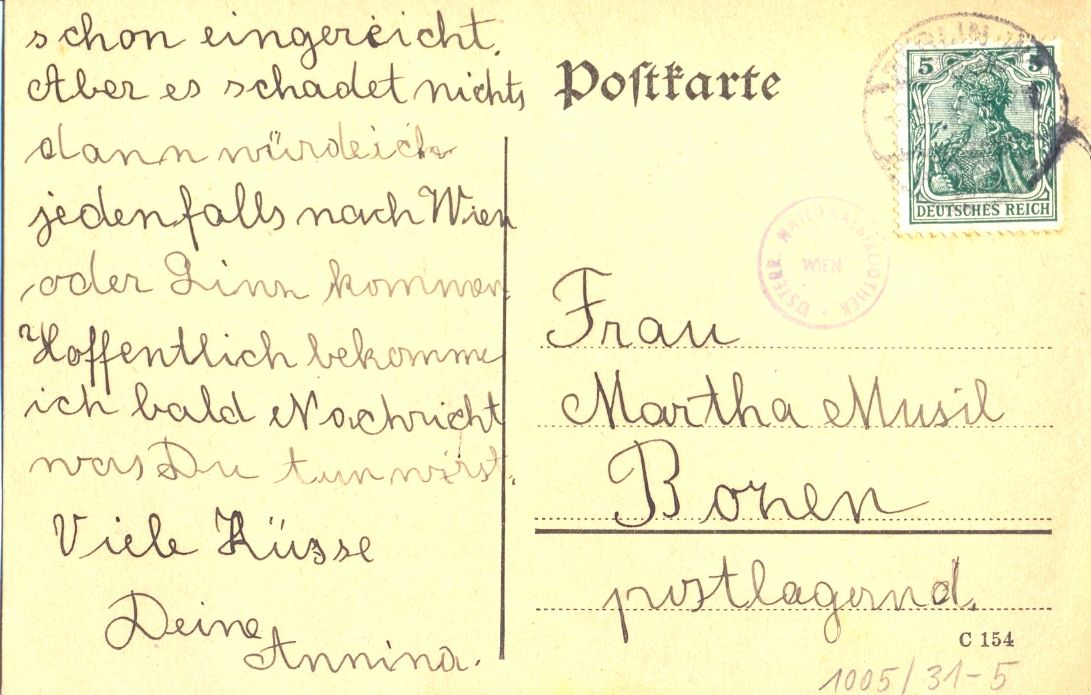 schon eingereicht.
Aber es schadet nichts
dann würde ich
jedenfalls nach Wien
oder Linn kommen.
Hoffentlich bekomme
ich bald Nachricht
was Du tun wirst.
Viele Küsse
Deine
Annina.
Postkarte
BERLIN
5 5
DEUTSCHES REICH
ÖSTERR. NATIONALBIBLIOTHEK
WIEN
Frau
Martha Musil
Bozen
postlagernd.
C 154
1005/31-5